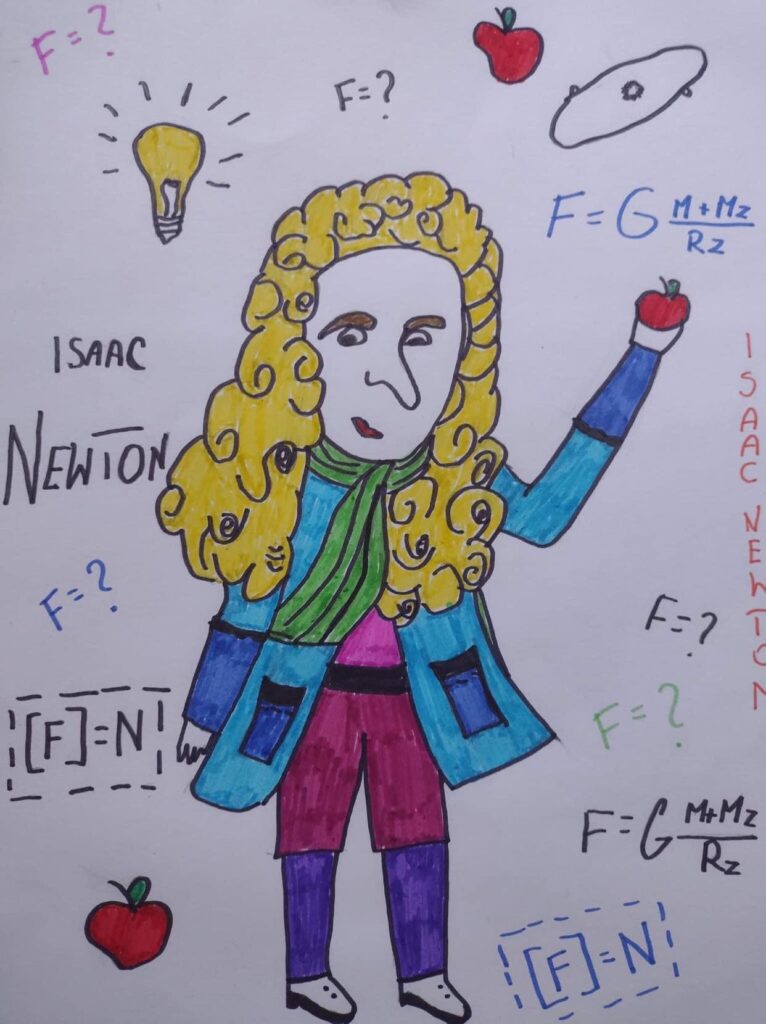 F=?
F=?
F=G M+Mz/Rz
ISAAC
NEWTON
ISAAC NEWTON
F=?
F=?
[F]=N
F=?
F=G M+Mz/Rz
[F]=N